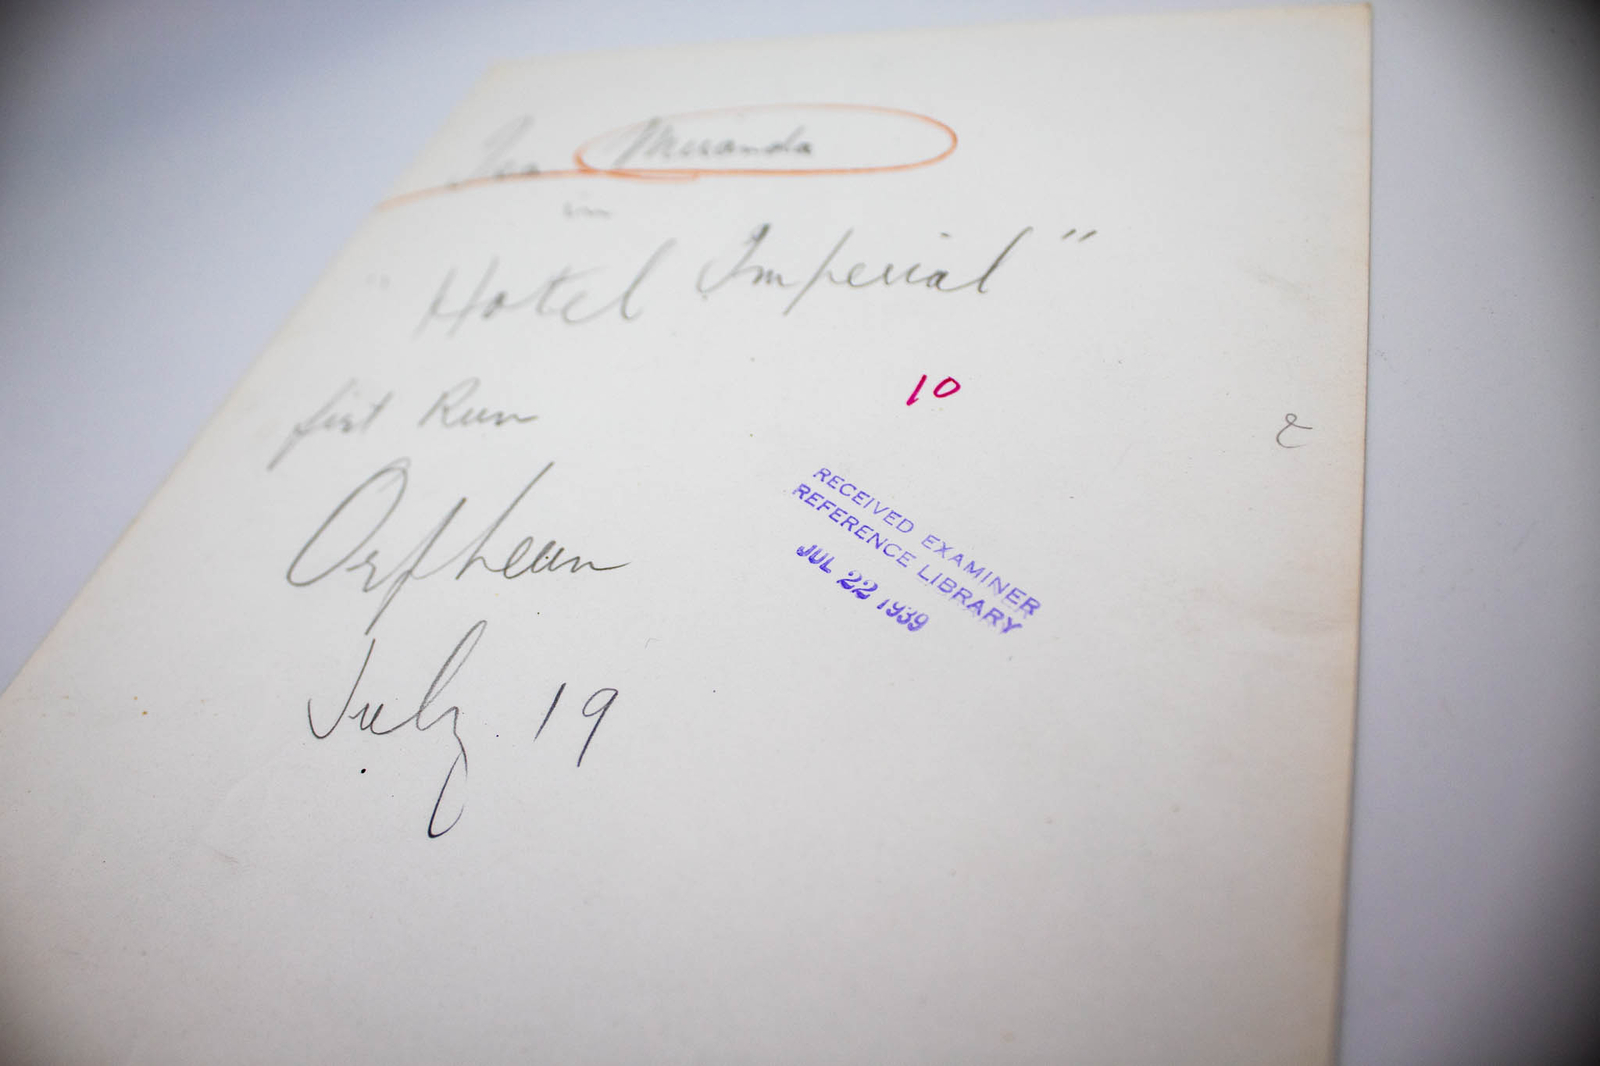 Miranda
in
"Hotel Imperial"
10
first Run
Orpheum
July 19
RECEIVED EXAMINER
REFERENCE LIBRARY
JUL 22 1939